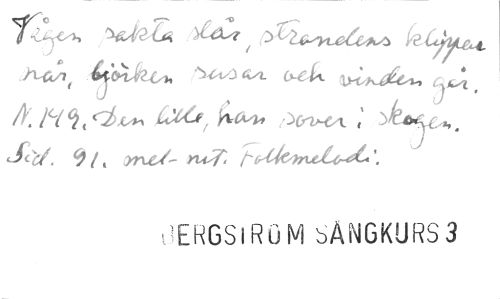 Vågen sakta slår, strandens klippa
når, björken susar och vinden går.
N. 149. Den lille, han sover i skogen.
Sid. 91. mel- not. Folkmelodi.
BERGSTRÖM SÅNGKURS 3